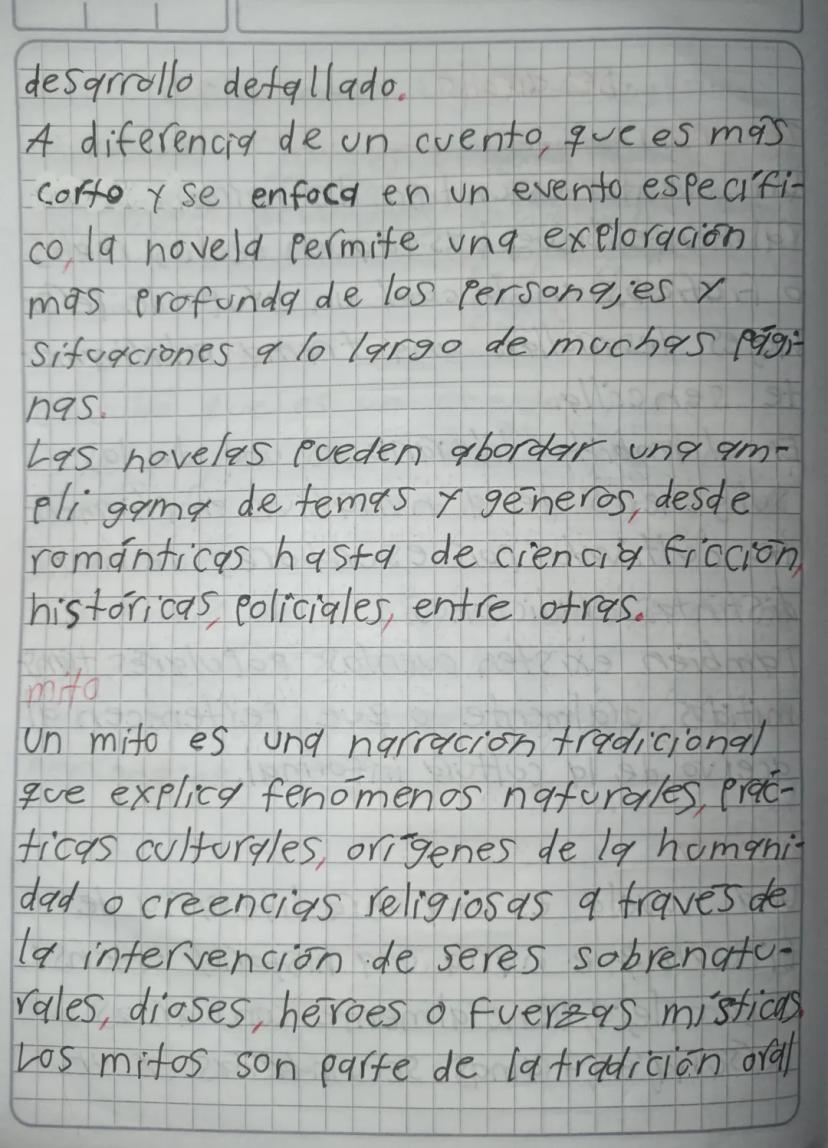 desarrollo detallado.
A diferencia de un cuento, que es más
corto y se enfoca en un evento específi-
co, la novela permite una exploración
más profunda de los personajes y
situaciones a lo largo de muchas pági-
nas.
Las novelas pueden abordar una am-
pli gama de temas y géneros, desde
románticas hasta de ciencia ficción,
históricas, policiales, entre otras.
mito
Un mito es una narración tradicional
que explica fenómenos naturales, prác-
ticas culturales, orígenes de la humani-
dad o creencias religiosas a través de
la intervención de seres sobrenatu-
rales, dioses, héroes o fuerzas místicas.
Los mitos son parte de la tradición oral